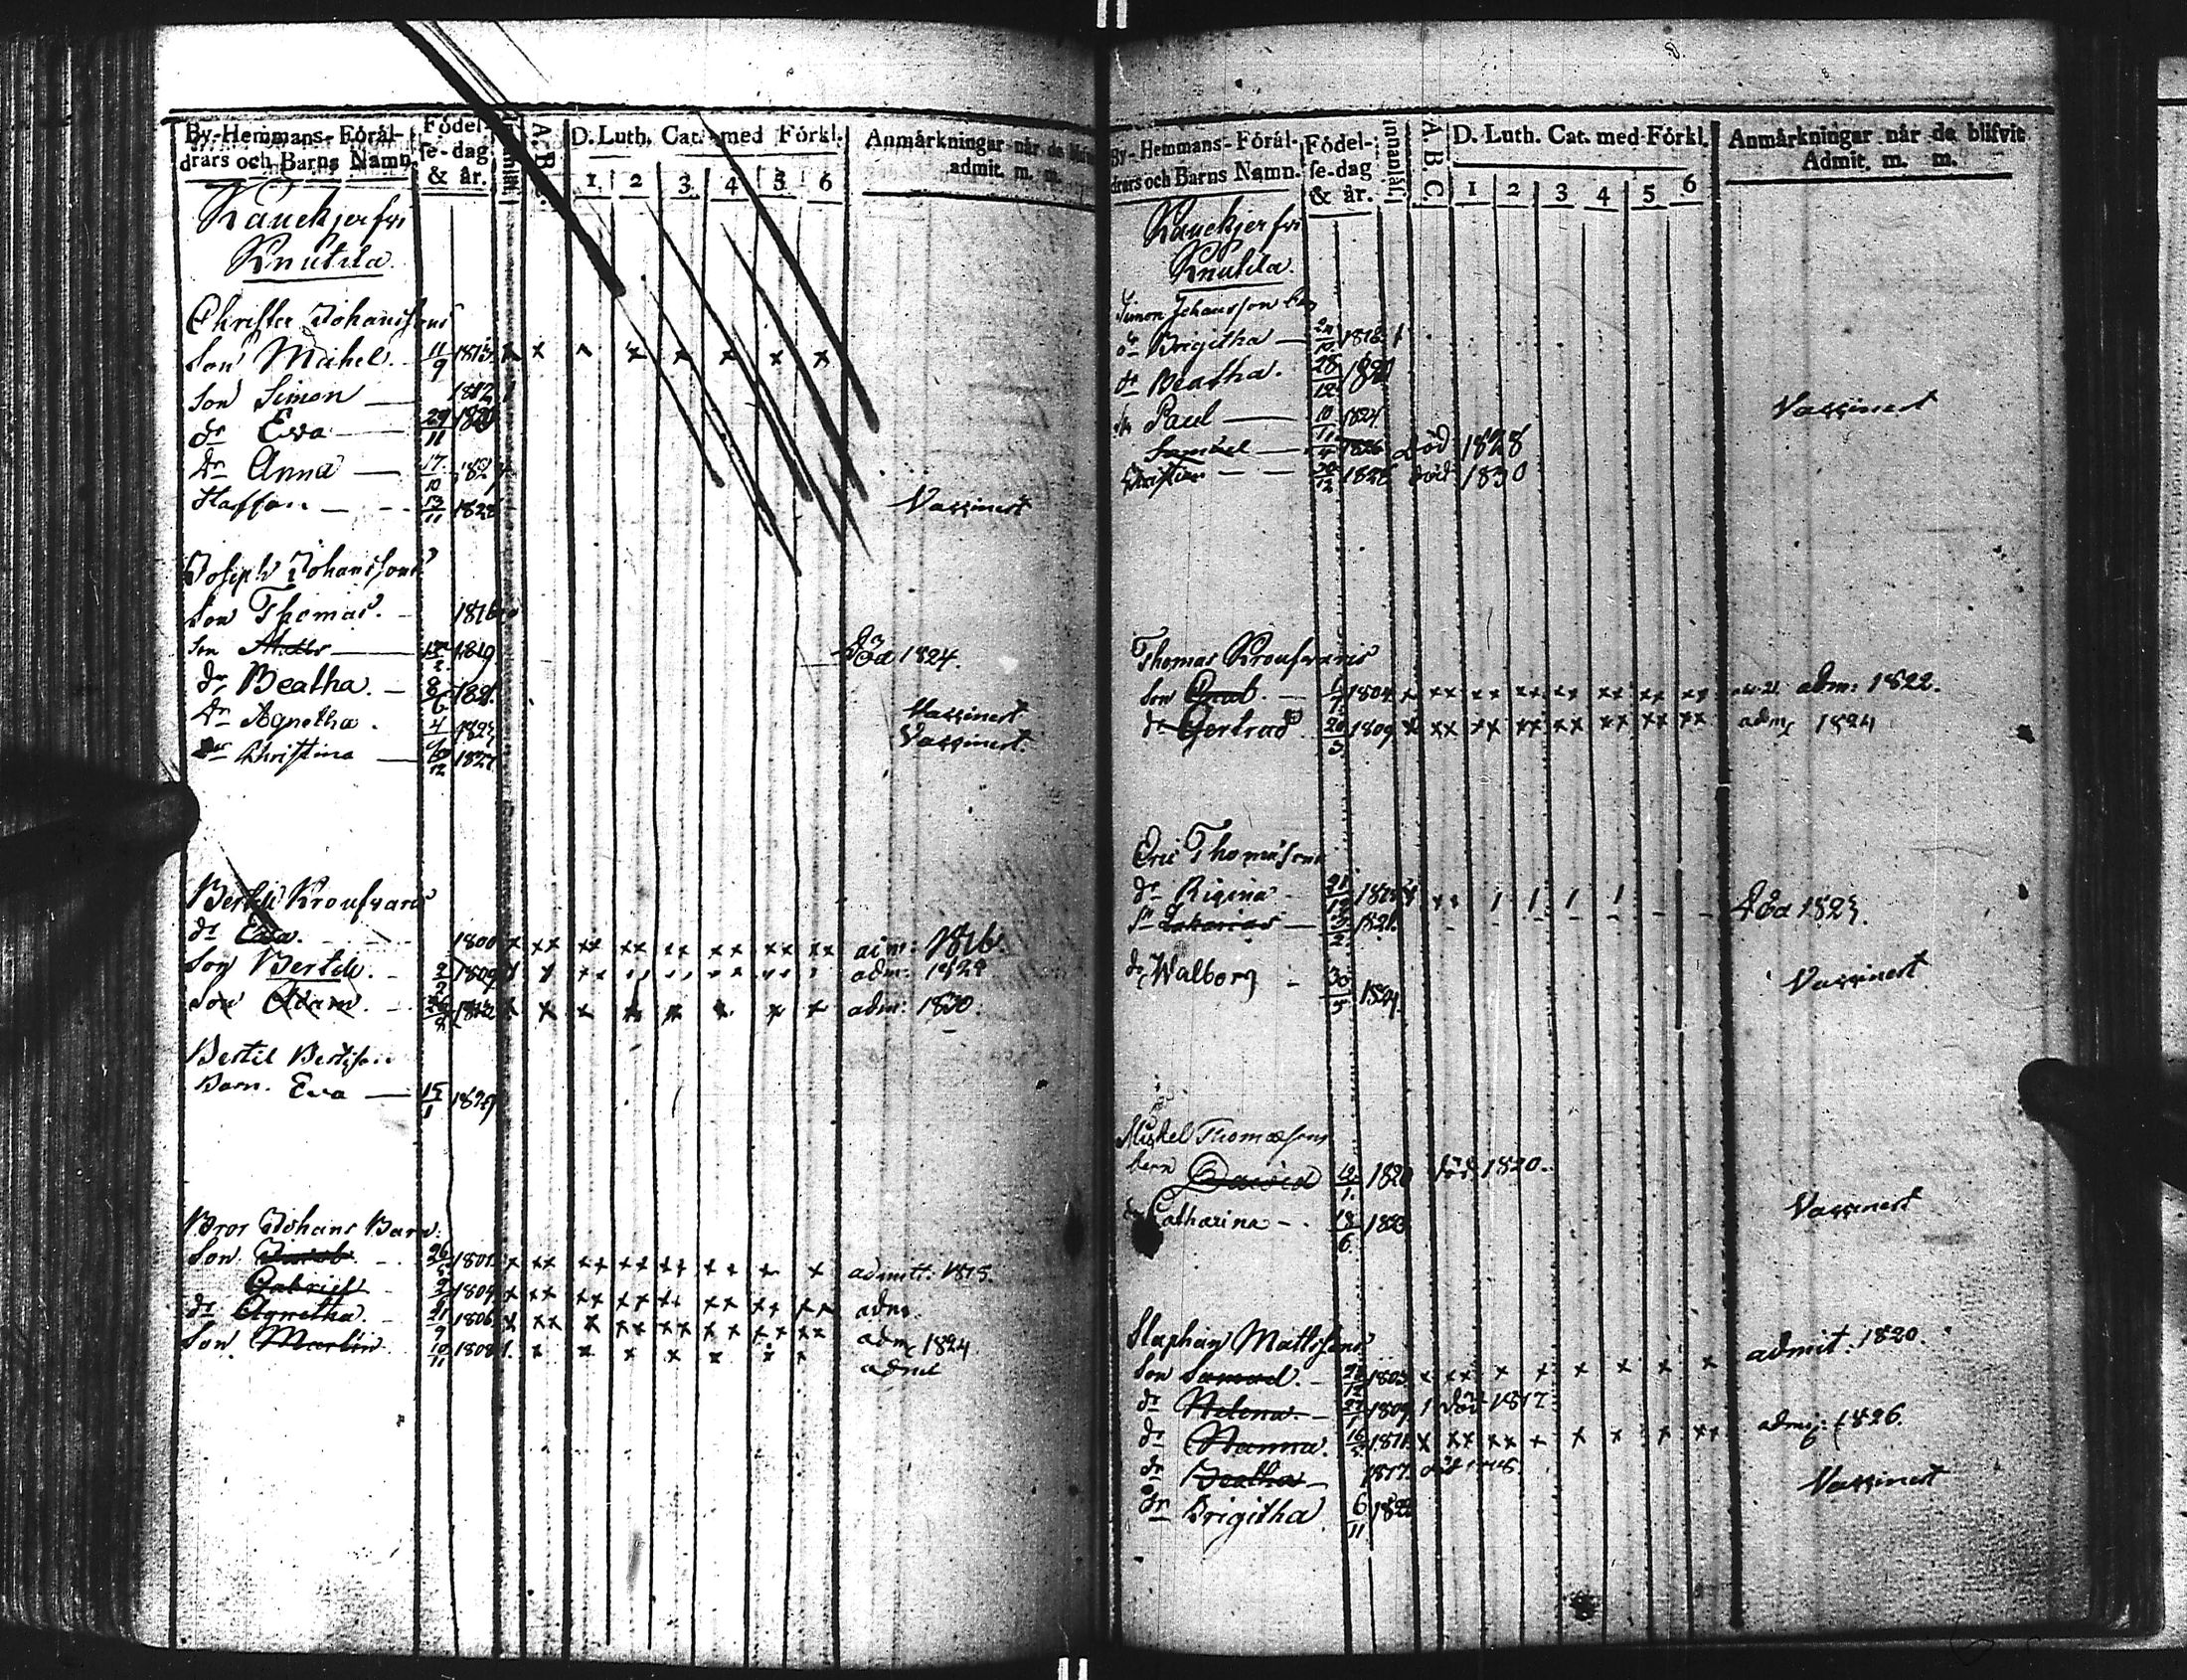 By-Hemmans-Förål-
drars och Barns Namn.
Födel-
se-dag
& år.
A. B. C.
D. Luth. Cat. med Förkl.
1. 2 3 4 5 6
Anmårkningar når de
admit. m. m.
Kauckjerfvi
Knutila.
Christer Johanssons
Son Michel. 11/9 1813. x x x x x x x x
Son Simon — 1812
dr Eva — 29/11 1820
dr Anna — 17/10 1824
Staffan — 13/11 1828 Vaccinert
Joseph Johanssons
Son Thomas. - 1816
Son Matts — 1819 Död 1824.
dr Beatha. — 8/6 1821.
dr Agnetha. 4 1823 Vaccinert
dr Christina — 12 1827 Vaccinert.
Bertil Kroufvars
dr Eva. 1800 x xx xx xx xx xx xx xx adm: 1816.
Son Bertil. - 1809 adm:
Son Adam. 1812 x x x x x x x x adm: 1830.
Bertil Bertilson
Barn. Eva — 15/1 1829
Bror Johans Barn.
Son Jacob 26 1801. x xx xx xx xx xx x x admitt: 1815.
Gabriel 1804 x xx xx xx xx xx xx xx adm.
dr Agnetha. 21/9 1806 x xx x xx xx xx xx xx adm 1824
Son. Martin 10/11 1808 1. x x x x x x x admit
By-Hemmans-Förål-
drars och Barns Namn.
Födel-
se-dag
& år.
Innanläs.
A. B. C.
D. Luth. Cat. med Förkl.
1 2 3 4 5 6
Anmårkningar når de blifvit
Admit. m. m.
Kauckjerfvi
Knutila.
Simon Johansson
dr Brigitha — 1818. 1
dr Beatha. 28/12 1821 Vaccinert
Paul — 1824
Samuel — 1826 död 1828
Christian — 12 1828 död 1830
Thomas Kroufvars
Son — 1804 x xx xx xx xx xx xx xx adm: 1822.
dr Gertrud 20/3 1809 x xx xx xx xx xx xx xx adm 1824
Eric Thomasons
dr Regina - 21
Sn Zakarias — 1821. Död 1823.
dr Walborg - 30/5 1824. Vaccinert
Michel Thomasons
barn David 12/1. 1820 död 1820.
dr Catharina - 18/6 1823 Vaccinert
Staphan Mattssons
Son Samuel. - 1803 x xx x x x x x x admit. 1820.
dr Helena. - 1809 1 död 1817
dr Hanna. 16 1811 x xx xx x x x x xx admit: 1826.
dr Beatha — 1817. död
dr Brigitha 6/11 1822 Vaccinert